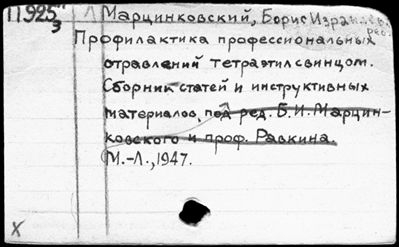 П925 Л Марцинковский, Борис Израилев.
3 ред.
Профилактика профессиональных
отравлений тетраэтилсвинцом.
Сборник статей и инструктивных
материалов, под ред. Б.И. Марцин-
ковского и проф. Равкина.
М.-Л., 1947.
X